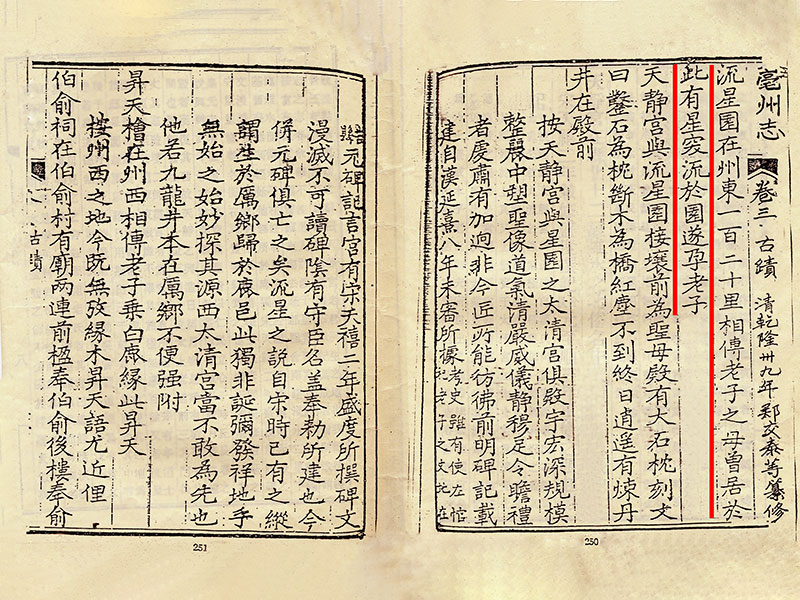 亳州志 卷三 古蹟 清乾隆卅九年鄭交泰等纂修
流星園在州東一百二十里相傳老子之母曾居於
此有星突流於園遂孕老子
天靜宮與流星園接壤前為聖母殿有大石枕刻文
曰鑿石為枕斷木為橋紅塵不到終日逍遙有煉丹
井在殿前
按天靜宮與星園之太清宮俱殿宇宏深規模
整麗中塑聖像道氣清嚴威儀靜穆足令瞻禮
者虔肅有加迥非今匠所能彷彿前明碑記載
建自漢延熹八年未審所據考史雖有使左悺
祀老子之文地在
250
元碑記言宮有宋天禧二年盛度所撰碑文
漫滅不可讀碑陰有守臣名蓋奉勅所建也今
併元碑俱亡之矣流星之說自宋時已有之縱
謂生於厲鄉歸於鹿邑此獨非誕彌發祥地乎
無始之始妙探其源西太清宮當不敢為先也
他若九龍井本在厲鄉不便强附
昇天檜在州西相傳老子乘白鹿緣此昇天
按州西之地今既無攷緣木昇天語尤近俚
伯俞祠在伯俞村有廟兩連前楹奉伯俞後樓奉俞
古蹟
251